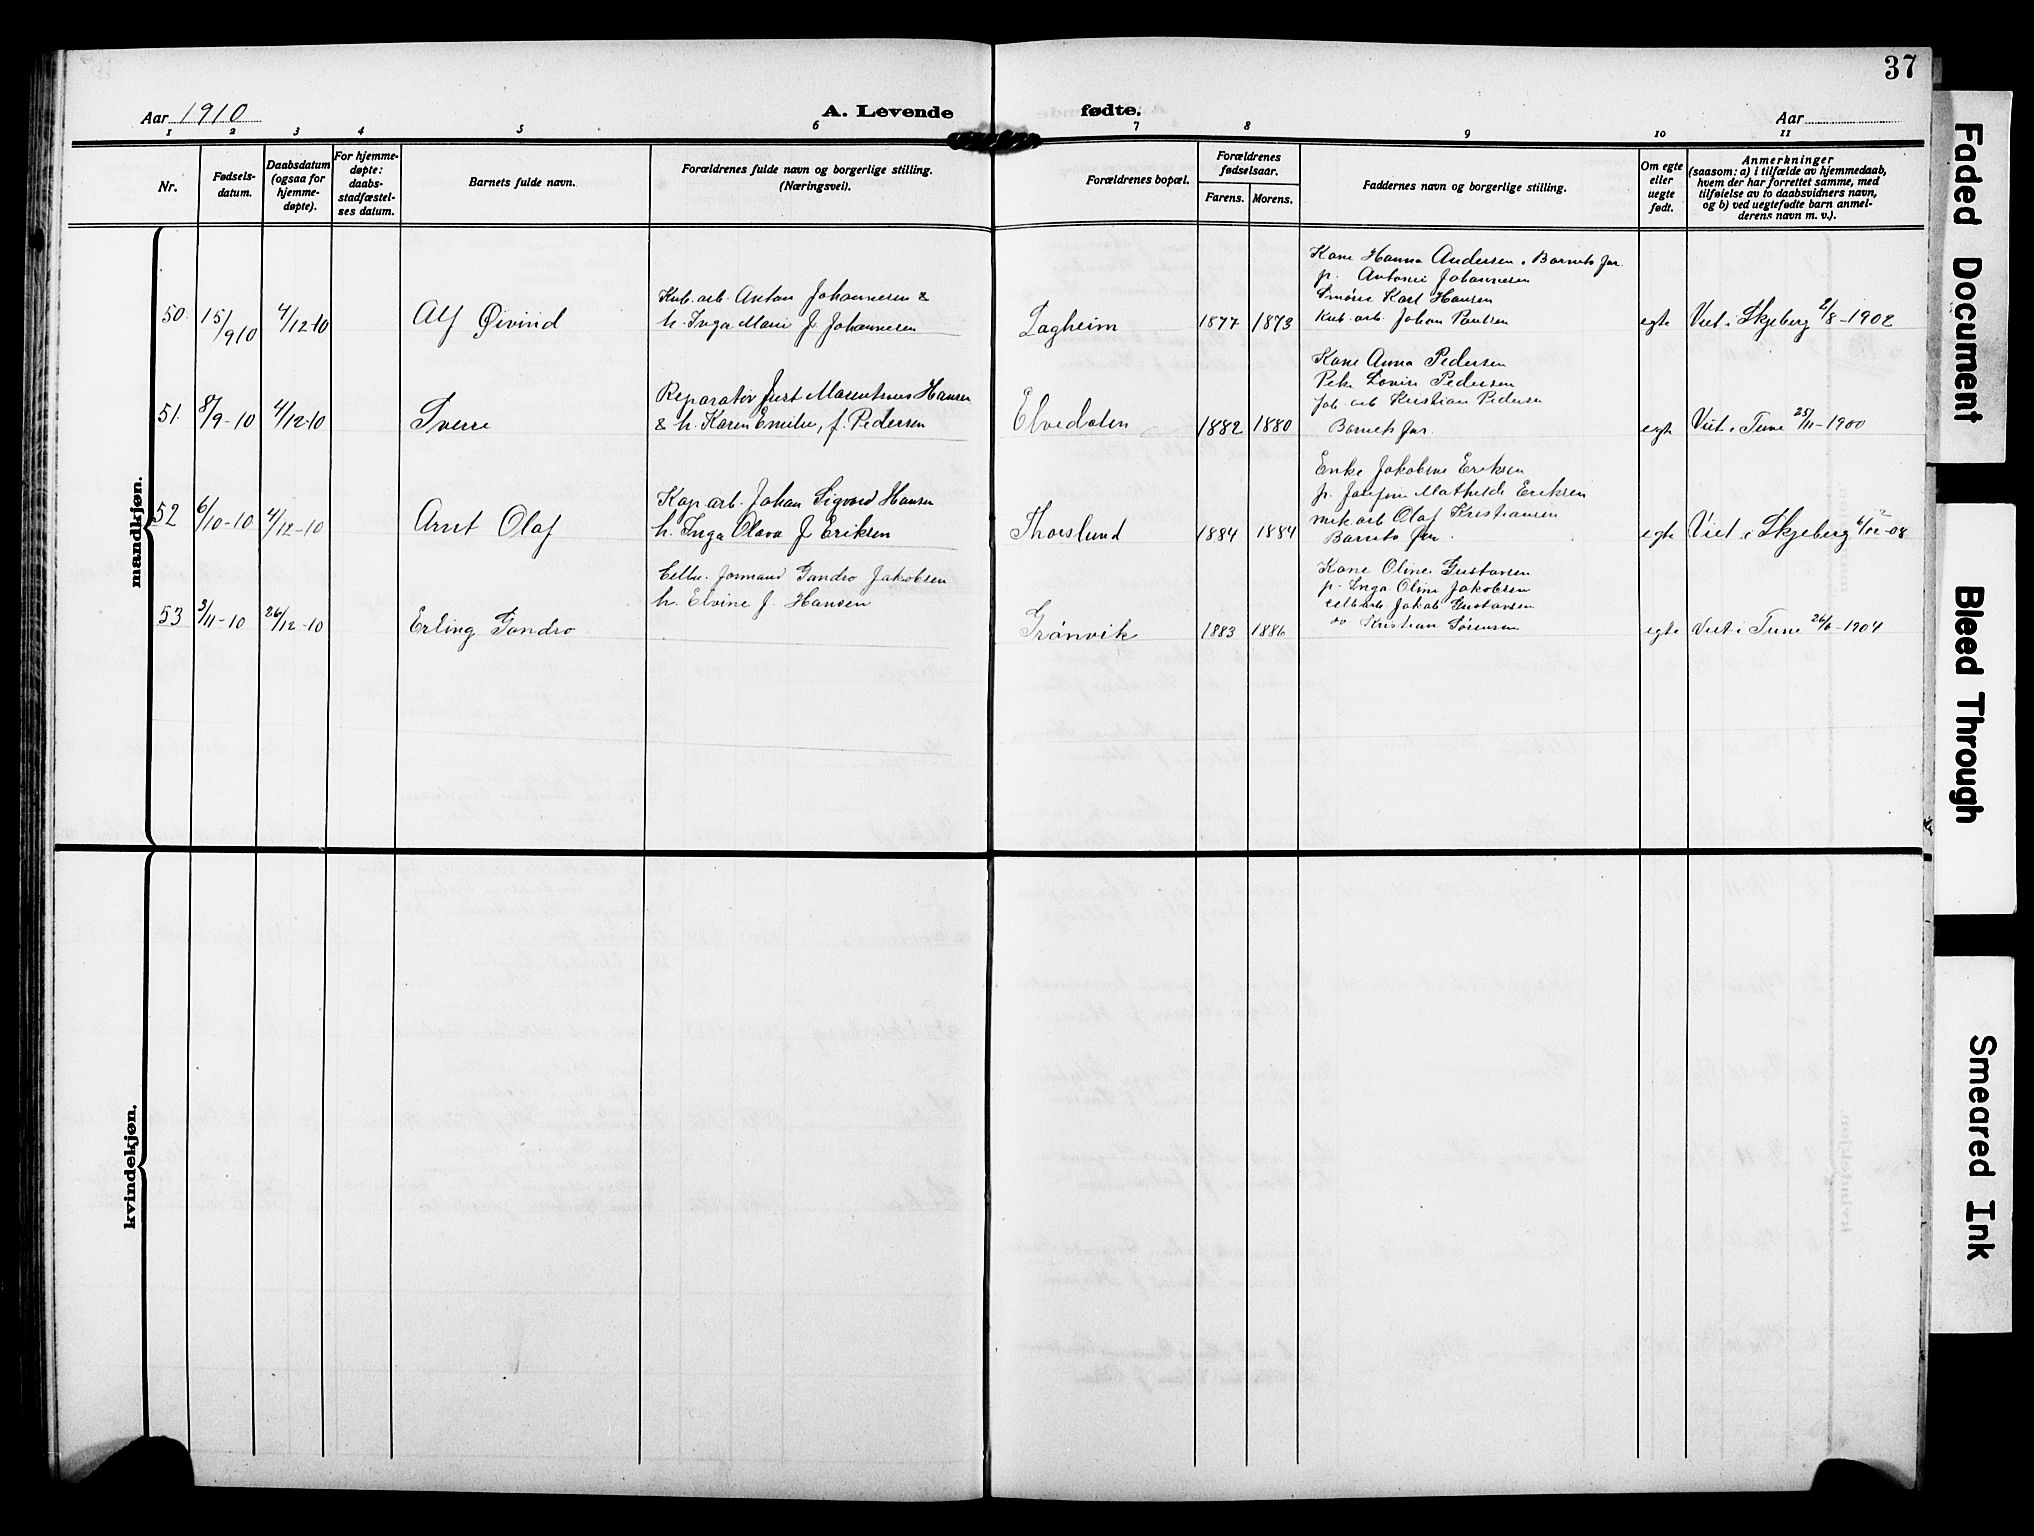 37
Aar 1910
A. Levende fødte.
Aar
1 2 3 4 5 6 7 8 9 10 11
Nr.
Fødsels-
datum.
Daabsdatum
(ogsaa for
hjemme-
døpte).
For hjemme-
døpte:
daabs-
stadfæstel-
ses datum.
Barnets fulde navn.
Forældrenes fulde navn og borgerlige stilling.
(Næringsvei).
Forældrenes bopæl.
Forældrenes
fødselsaar.
Farens. Morens.
Faddernes navn og borgerlige stilling.
Om egte
eller
uegte
født.
Anmerkninger
(saasom: a) i tilfælde av hjemmedaab,
hvem der har forrettet samme, med
tilføielse av to daabsvidners navn,
og b) ved uegtefødte barn anmel-
derens navn m. v.).
mandkjøn.
50. 15/9 10 4/12-10 Alf Øivind
Kub. arb. Anton Johannesen &
h. Inga Marie f Johannesen
Lagheim 1877 1873
Kone Hanna Andersen. Barnets far.
p. Antonie Johannesen
Smører Karl Hansen
Kub. arb. Johan Paulsen
egte Viet i Skjeberg 2/8-1902
51. 8/9-10 4/12-10 Sverre
Reparatør Just Marentius Hansen
& h. Karen Emilie, f. Pedersen
Elvedalen 1882 1880
Kone Anna Pedersen
Pike Lovise Pedersen
fab. arb Kristian Pedersen
Barnets far.
egte Viet i Tune 25/11-1900
52 6/10-10 4/12-10 Arnt Olaf
Kap. arb. Johan Sigvard Hansen
h. Inga Olava f Eriksen
Thorslund 1884 1884
Enke Jakobine Eriksen
p. Josefine Mathilde Eriksen
mek arb Olaf Kristiansen
Barnets far.
egte Viet i Skjeberg 6/12-08
53 3/11-10 26/12-10 Erling Gandro
Cellu. formand Gandro Jakobsen
h. Elvine f. Hansen
Grønvik 1883 1886
Kone Oline Gustavsen
p. Inga Oline Jakobsen
cell arb. Jakob Gustavsen
Kristian Sørensen
egte Viet i Tune 26/6-1904
kvindekjøn.
Faded Document
Bleed Through
Smeared Ink